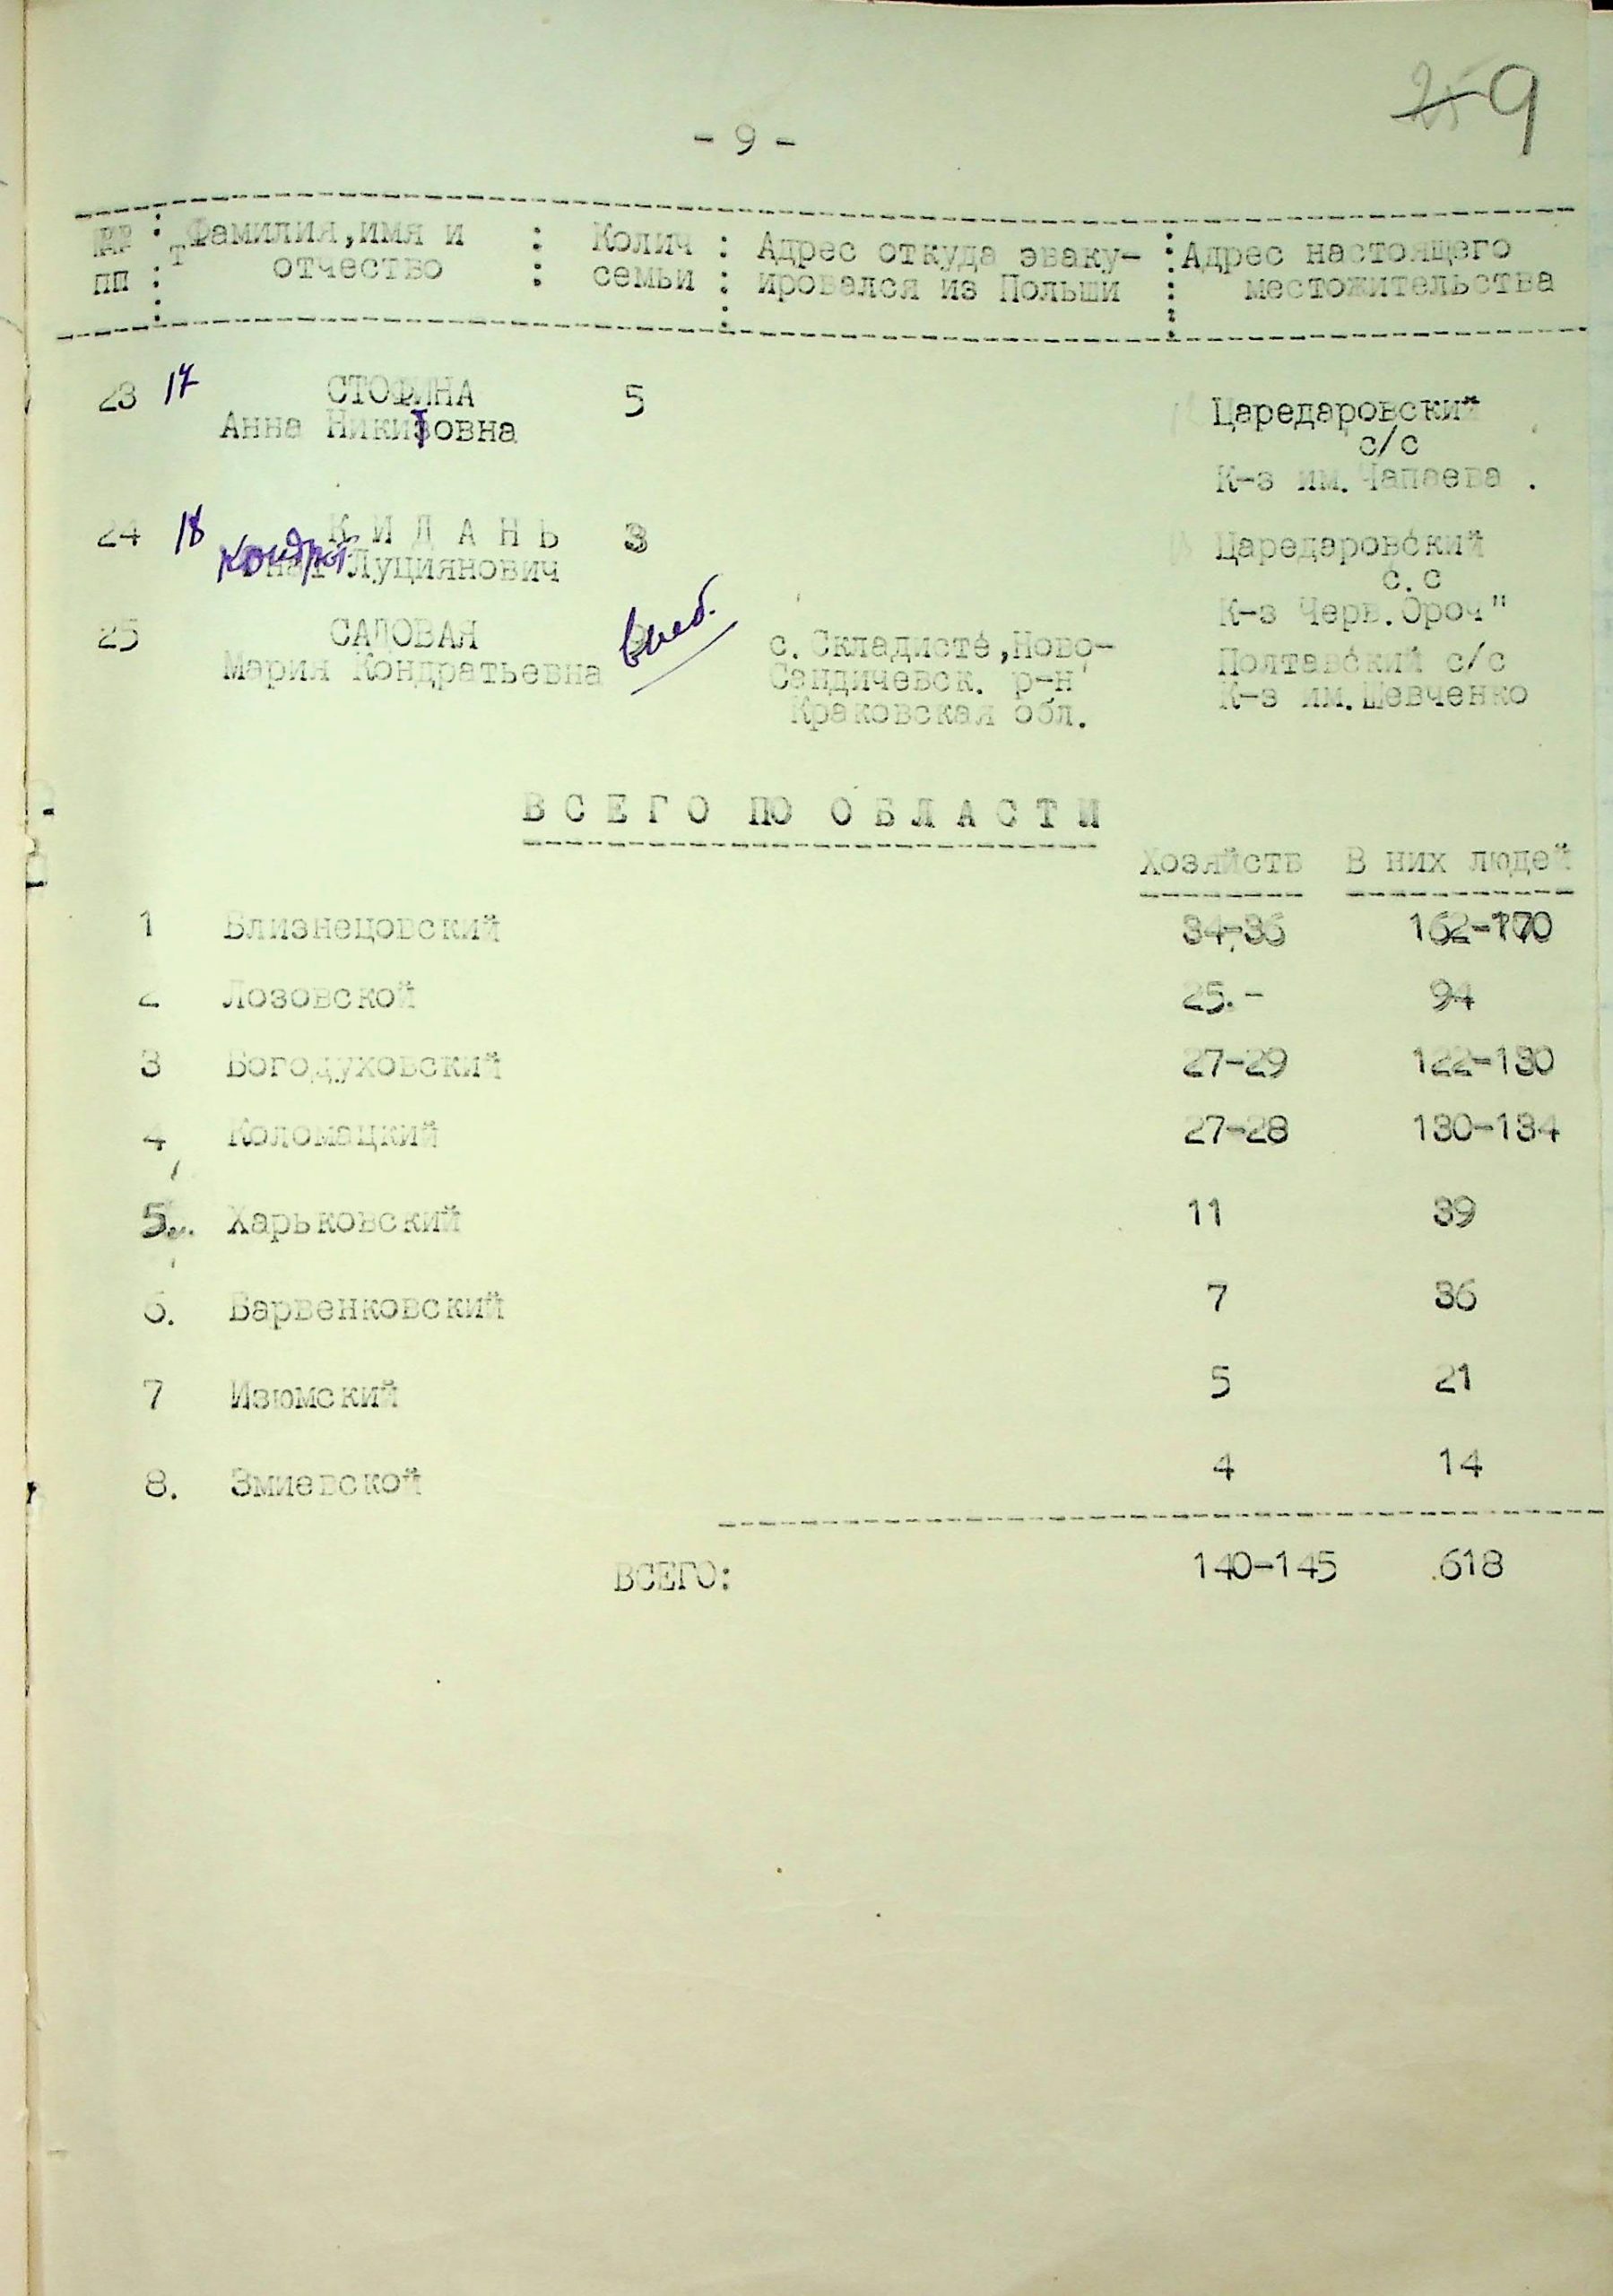 25 9
- 9 -
№№ : Фамилия, имя и : Колич : Адрес откуда эваку- : Адрес настоящего
пп : отчество : семьи : ировался из Польши : местожительства
23 17 СТОФИНА 5 Царедаровский
Анна Никитовна с/с
К-з им. Чапаева .
24 18 К И Д А Н Ь 3 Царедаровский
Кондрат Луциянович с.с
К-з Черв. Ороч"
25 САДОВАЯ с. Складисте, Ново- Полтавский с/с
Мария Кондратьевна Сандичевск. р-н К-з им. Шевченко
Краковская обл.
В С Е Г О ПО О Б Л А С Т И
Хозяйств В них людей
1 Близнецовский 34-36 162-170
2 Лозовской 25.- 94
3 Богодуховский 27-29 122-130
4 Коломацкий 27-28 130-134
5. Харьковский 11 39
6. Барвенковский 7 36
7 Изюмский 5 21
8. Змиевской 4 14
ВСЕГО: 140-145 618